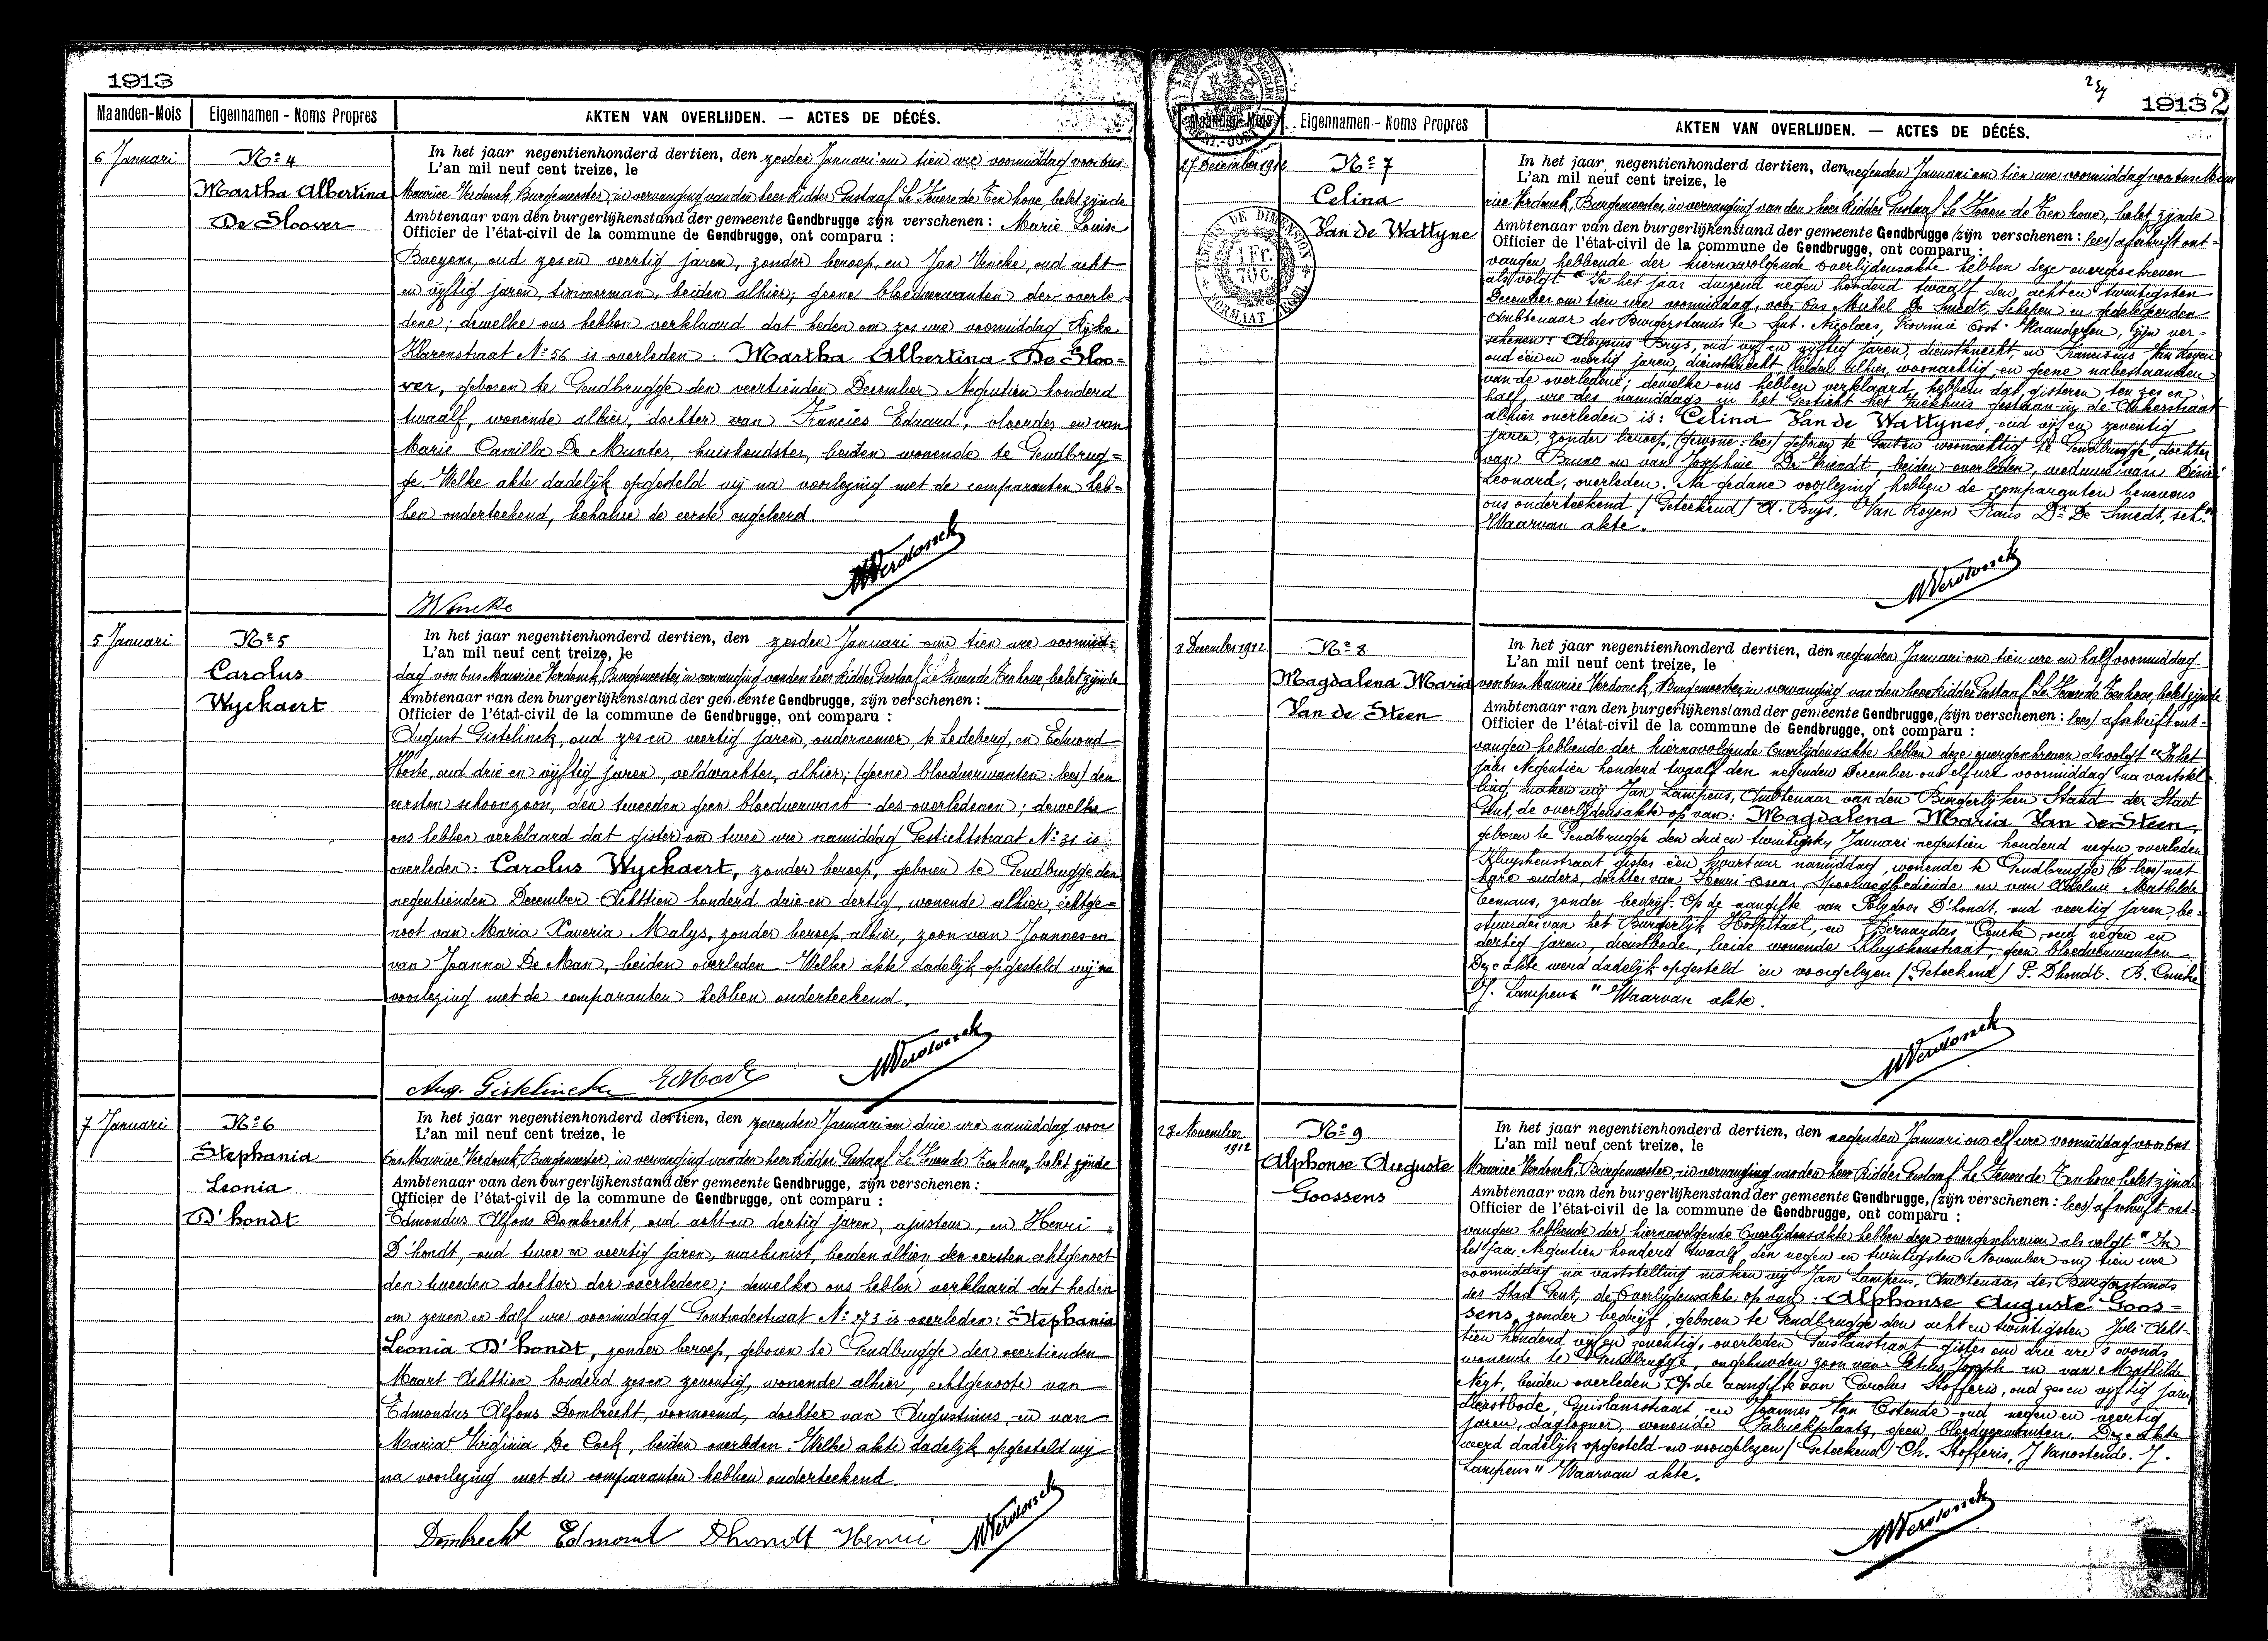 1913
Maanden-Mois Eigennamen - Noms Propres AKTEN VAN OVERLIJDEN. — ACTES DE DÉCÉS.
6 Januari
No 4
Martha Albertina
De Sloover
In het jaar negentienhonderd dertien, den zesden Januari om tien ure voormiddag voor ons
L'an mil neuf cent treize, le
Maurice Verdonck, Burgemeester, in vervanging van den heer Ridder Gustaaf Le Fevere de Ten hove, belet zijnde
Ambtenaar van den burgerlijkenstand der gemeente Gendbrugge zijn verschenen: Marie Louise
Officier de l'état-civil de la commune de Gendbrugge, ont comparu :
Baeyens, oud zes en veertig jaren, zonder beroep, en Jan Vincke, oud acht
en vijftig jaren, timmerman, beiden alhier; geene bloedverwanten der overle-
dene; dewelke ons hebben verklaard dat heden om zes ure voormiddag Rijke
Klarenstraat No 56 is overleden: Martha Albertina De Sloo-
ver, geboren te Gendbrugge den veertienden December Negentien honderd
twaalf, wonende alhier, dochter van Francies Eduard, vloerder en van
Marie Camilla De Munter, huishoudster, beiden wonende te Gendbrug=
ge. Welke akte dadelijk opgesteld wij na voorlezing met de comparanten heb=
ben onderteekend, behalve de eerste ongeleerd.
MVerdonck
Vincke
5 Januari
No 5
Carolus
Wyckaert
In het jaar negentienhonderd dertien, den zesden Januari om tien ure voormid=
L'an mil neuf cent treize, le
dag voor ons Maurice Verdonck, Burgemeester, in vervanging van den heer Ridder Gustaaf Le Fevere de Ten hove, belet zijnde
Ambtenaar van den burgerlijkenstand der gemeente Gendbrugge, zijn verschenen :
Officier de l'état-civil de la commune de Gendbrugge, ont comparu :
August Gistelinck, oud zes en veertig jaren, ondernemer, te Ledeberg, en Edmond
Hoste, oud drie en vijftig jaren, veldwachter, alhier; (geene) bloedverwanten: lees) den
eersten schoonzoon, den tweeden geen bloedverwant des overledenen; dewelke
ons hebben verklaard dat gister om twee ure namiddag Gestichtstraat No 31 is
overleden: Carolus Wyckaert, zonder beroep, geboren te Gendbrugge den
negentienden December Achttien honderd drie en dertig, wonende alhier, echtge=
noot van Maria Xaveria Malys, zonder beroep, alhier, zoon van Joannes en
van Joanna De Man, beiden overleden. Welke akte dadelijk opgesteld wij na
voorlezing met de comparanten hebben onderteekend.
MVerdonck
Aug. Gistelinck
7 Januari
No 6
Stephania
Leonia
D'hondt
In het jaar negentienhonderd dertien, den zevenden Januari om drie ure namiddag voor
L'an mil neuf cent treize, le
ons Maurice Verdonck, Burgemeester, in vervanging van den heer Ridder Gustaaf Le Fevere de Ten hove, belet zijnde
Ambtenaar van den burgerlijkenstand der gemeente Gendbrugge, zijn verschenen :
Officier de l'état-civil de la commune de Gendbrugge, ont comparu :
Edmondus Alfons Dombrecht, oud acht en dertig jaren, ajusteur, en Henri
D'hondt, oud twee en veertig jaren, machinist, beiden alhier, den eersten echtgenoot
den tweeden dochter der overledene; dewelke ons hebben verklaard dat heden
om zeven en half ure voormiddag Gontrodestraat No 273 is overleden: Stephania
Leonia D'hondt, zonder beroep, geboren te Gendbrugge den veertienden
Maart Achttien honderd zes en zeventig, wonende alhier, echtgenoote van
Edmondus Alfons Dombrecht, voornoemd, dochter van Augustinus en van
Maria Virginia De Cock, beiden overleden. Welke akte dadelijk opgesteld wij
na voorlezing met de comparanten hebben onderteekend.
Dombrecht Edmont Dhondt Henri MVerdonck
1913 2
Maanden-Mois Eigennamen - Noms Propres AKTEN VAN OVERLIJDEN. — ACTES DE DÉCÉS.
TIMBRE DE DIMENSION
1 Fr.
70 C.
FORMAAT ZEGEL
27 December 1912
No 7
Celina
Van de Wattyne
In het jaar negentienhonderd dertien, den negenden Januari om tien ure voormiddag voor ons Mau
L'an mil neuf cent treize, le
rice Verdonck, Burgemeester, in vervanging van den heer Ridder Gustaaf Le Fevere de Ten hove, belet zijnde
Ambtenaar van den burgerlijkenstand der gemeente Gendbrugge (zijn verschenen: lees) afschrift ont=
Officier de l'état-civil de la commune de Gendbrugge, ont comparu :
vangen hebbende der hiernavolgende overlijdensakte hebben deze overgeschreven
als volgt "In het jaar duizend negen honderd twaalf den achten twintigsten
December om tien ure voormiddag, voor ons Michel De Smedt, Schepen en gedelegeerden
Ambtenaar des Burgerstands te Sint-Nicolaes, Provincie Oost-Vlaanderen, zijn ver-
schenen: Aloysius Buys, oud vijf en vijftig jaren, dienstknecht, en Franciscus Van Royen
oud een en veertig jaren, dienstknecht, beiden alhier, woonachtig en geene nabestaanden
van de overledene; dewelke ons hebben verklaard, hebben dat gisteren ten zes en
half ure des namiddags in het Gesticht het Ziekhuis gestaan in de Ankerstraat
alhier overleden is: Celina Van de Wattyne, oud vijf en zeventig
jaren, zonder beroep, (gewone: lees) geboren te Genten woonachtig te Gendbrugge, dochter
van Bruno en van Josephine De Vriendt, beiden overleden, weduwe van Désiré
Leonard, overleden. Na gedane voorlezing hebben de comparanten benevens
ons onderteekend / Geteekend / A. Buys, Van Royen Frans Dr De Smedt, sch.n
Waarvan akte.
MVerdonck
8 December 1912
No 8
Magdalena Maria
Van de Steen
In het jaar negentienhonderd dertien, den negenden Januari om tien ure en half voormiddag
L'an mil neuf cent treize, le
voor ons Maurice Verdonck, Burgemeester, in vervanging van den heer Ridder Gustaaf Le Fevere de Ten hove, belet zijnde
Ambtenaar van den burgerlijkenstand der gemeente Gendbrugge, (zijn verschenen: lees) afschrift ont-
Officier de l'état-civil de la commune de Gendbrugge, ont comparu :
vangen hebbende der hiernavolgende Overlijdensakte hebben deze overgeschreven als volgt "In het
jaar Negentien honderd twaalf den negenden December om elf ure voormiddag na vaststel-
ling, maken wij Jan Lampens, Ambtenaar van den Burgerlijken Stand der Stad
Gent, de overlijdensakte op van: Magdalena Maria Van de Steen,
geboren te Gendbrugge den drie en twintigsten Januari negentien honderd negen, overleden
Kluyskenstraat gister een kwart uur namiddag, wonende te Gendbrugge (te: lees) met
hare ouders, dochter van Henri Oscar, spoorwegbediende en van Adeline Mathilde
Eemans, zonder bedrijf. Op de aangifte van Polydoor D'hondt, oud veertig jaren, be-
stuurder van het Burgerlijk Hospitaal, en Bernardus Coucke, oud negen en
dertig jaren, dienstbode, beide wonende Kluyskenstraat, geen bloedverwanten
Deze akte werd dadelijk opgesteld en voorgelezen / Geteekend / P. Dhondt. B. Coucke
J. Lampens" Waarvan akte.
MVerdonck
28 November
1912
No 9
Alphonse Auguste
Goossens
In het jaar negentienhonderd dertien, den negenden Januari om elf ure voormiddag voor ons
L'an mil neuf cent treize, le
Maurice Verdonck, Burgemeester, in vervanging van den heer Ridder Gustaaf Le Fevere de Ten hove, belet zijnde
Ambtenaar van den burgerlijkenstand der gemeente Gendbrugge, (zijn verschenen: lees) afschrift ont-
Officier de l'état-civil de la commune de Gendbrugge, ont comparu :
vangen hebbende der hiernavolgende Overlijdensakte hebben deze overgeschreven als volgt "In
het jaar Negentien honderd twaalf, den negen en twintigsten November om tien ure
voormiddag na vaststelling maken wij Jan Lampens, Ambtenaar des Burgerstands
der Stad Gent, de Overlijdensakte op van: Alphonse Auguste Goos=
sens, zonder bedrijf, geboren te Gendbrugge den acht en twintigsten Juli Acht-
tien honderd vijf en zeventig, overleden Guislanstraat gister om drie ure 's avonds
wonende te Gendbrugge, ongehuwden zoon van Petrus Joseph en van Mathilde
Neyt, beiden overleden. Op de aangifte van Carolus Stofferis, oud zes en vijftig jaren
dienstbode, Guislanstraat, en Joannes Van Ostende oud negen en veertig
jaren, daglooner, wonende Fabriekplaats, geen bloedverwanten. Deze akte
werd dadelijk opgesteld en voorgelezen / Geteekend / Ch. Stofferis, J Vanostende. J.
Lampens" Waarvan akte.
MVerdonck